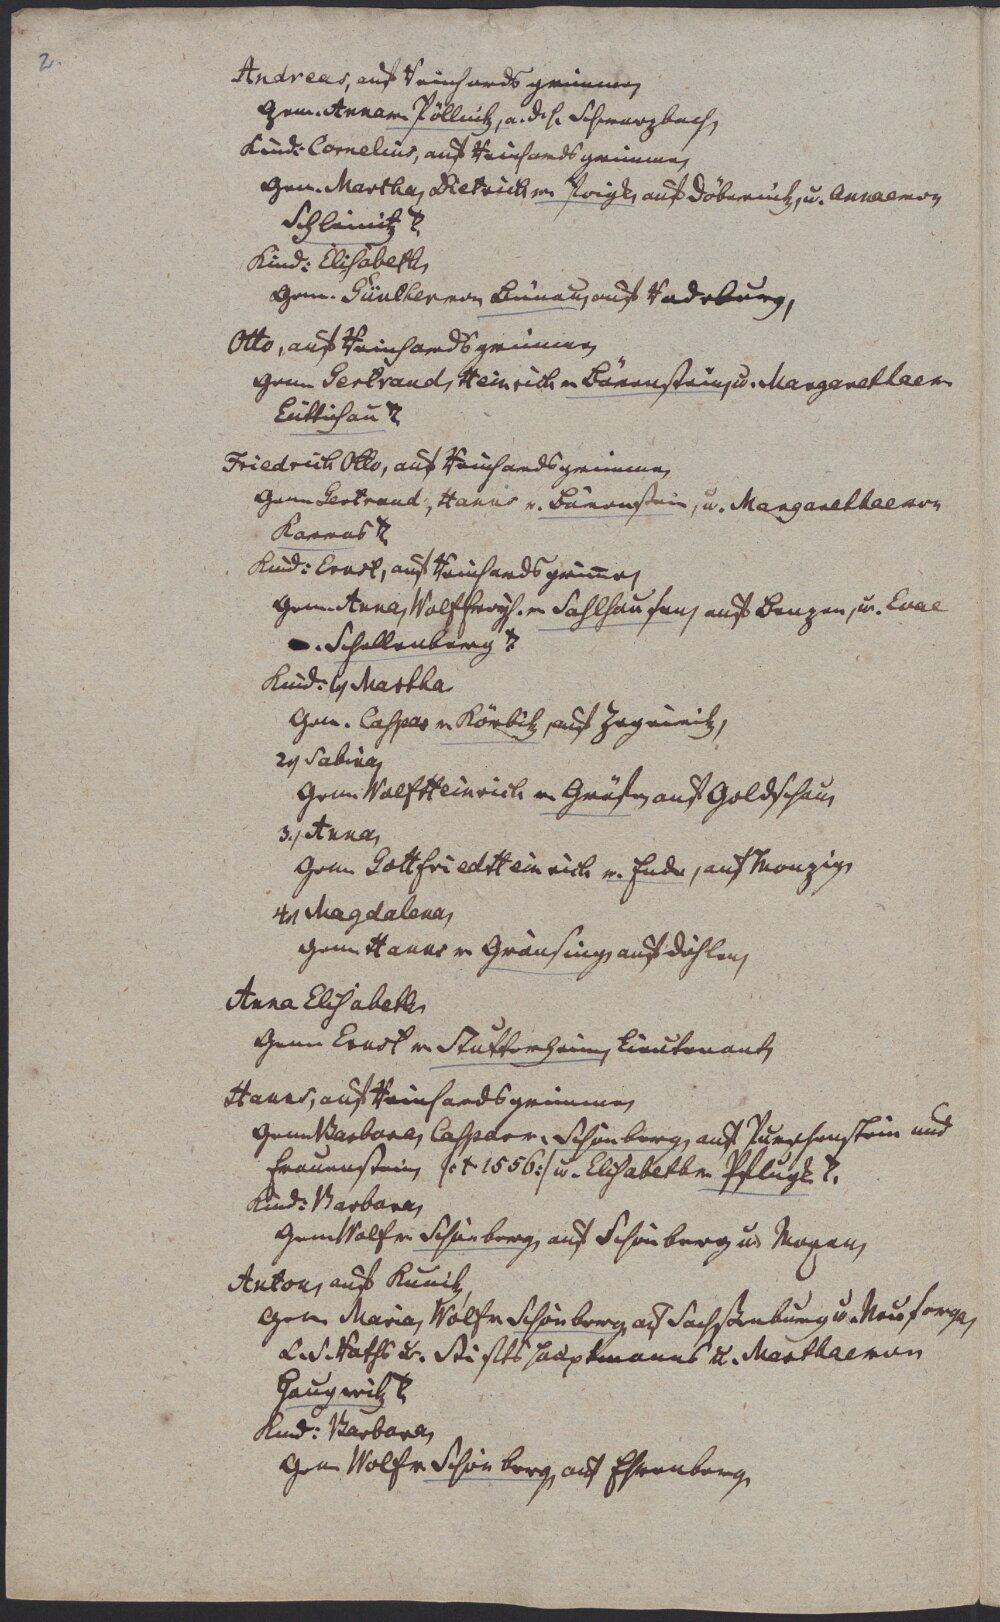 2.
Andreas, auf Reinhardsgrimma,
Gem. Anna v. Pöllnitz, a. d. H. Schwarzbach,
Kind: Cornelius, auf Reinhardsgrimma,
Gem. Martha, Dietrich v. auf Döbernitz, u. Annae von
Schleinitz T.
Kind: Elisabeth,
Gem. Günther von Bünau, auf Radeburg,
Otto, auf Reinhardsgrimma,
Gem. Gertraud, Heinrich v. Bärenstein, u. Margarethae v.
Lüttichau T.
Friedrich Otto, auf Reinhardsgrimma,
Gem. Gertraud, Hanns v. Bärenstein, u. Margarethae von
Karras T.
Kind: Ernst, auf Reinhardsgrimma,
Gem. Anna, Wolf v. Sahlhausen, auf Benzen, u. Evae
v. Schellenberg T.
Kind: 1, Martha
Gem. Caspar v. Körbitz, auf
2, Sabina,
Gem. Wolf Heinrich v. Gräfen auf Goldschau,
3., Anna,
Gem. Gottfried Heinrich v. Ende, auf Monzig,
4, Magdalena,
Gem. Hanns v. Gräusing, auf Döhlen,
Anna Elisabeth,
Gem. Ernst v. Stutterheim, Lieutenant,
Hanns, auf Reinhardsgrimma,
Gem. Barbara, Caspar v. Schönberg, auf Purschenstein und
Frauenstein, /: † 1556 :/ u. Elisabeth v. Pflugk T.
Kind: Barbara,
Gem. Wolf v. Schönberg, auf Schönberg u. Maxen,
Anton, auf Kunitz,
Gem. Maria, Wolf v. Schönberg, auf Sachsenburg u. Neusorga,
C. S. Raths u. Stifts Hauptmanns u. Marthae von
Haugwitz T.
Kind: Barbara,
Gem. Wolf v. Schönberg, auf Ehrenberg,